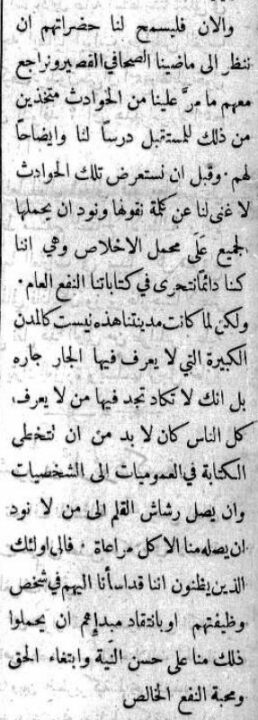 والان فليسمح لنا حضراتهم ان
ننظر الى ماضينا الصحافي القصير ونراجع
معهم ما مرَّ علينا من الحوادث متخذين
من ذلك للمستقبل درساً لنا وايضاحاً
لهم . وقبل ان نستعرض تلك الحوادث
لا غنى لنا عن كلمة نقولها ونود ان يحملها
الجميع عَلَى محمل الاخلاص وهي اننا
كنا دائمًا نتحرى في كتاباتنا النفع العام .
ولكن لما كانت مدينتنا هذه ليست كالمدن
الكبيرة التي لا يعرف فيها الجار جاره
بل انك لا تكاد تجد فيها من لا يعرف
كل الناس كان لا بد من ان لتخطى
الكتابة في العموميات الى الشخصيات
وان يصل رشاش القلم الى من لا نود
ان يصله منا الا كل مراعاة . فالى اولئك
الذين يظنون اننا قد اسأنا اليهم في شخص
وظيفتهم او بانتقاد مبدإهم ان يحملوا
ذلك منا على حسن النية وابتغاء الحق
ومحبة النفع الخالص